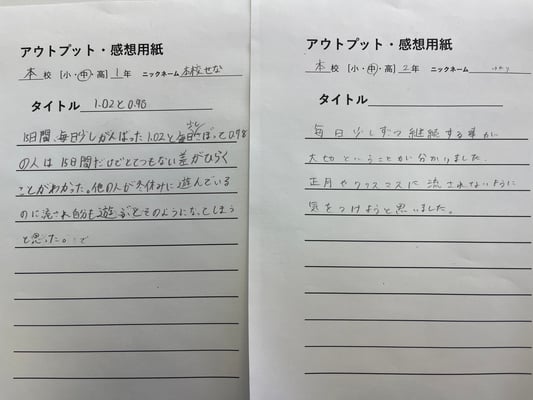 アウトプット・感想用紙
本 校 [小・中・高] 1年 ニックネーム 本校せな
タイトル 1.02と0.98
15日間、毎日少しがんばった1.02と毎日少しさぼって0.98
の人は15日間だけでとてつもない差がひらく
ことがわかった。他の人が冬休みに遊んでいる
のに流され自分も遊ぶとそのようになってしまう
と思った。
アウトプット・感想用紙
本 校 [小・中・高] 2年 ニックネーム
タイトル
毎日少しずつ継続する事が
大切ということが分かりました。
正月やクリスマスに流されないように
気をつけようと思いました。